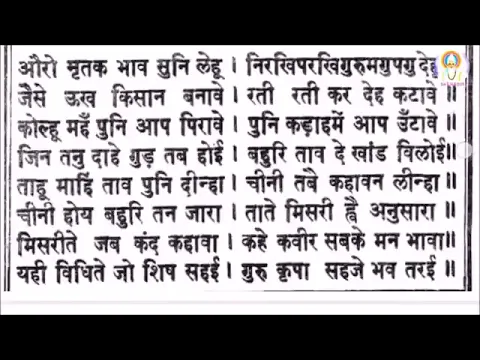 औरो मृतक भाव सुनि लेहू । निरखिपरखिगुरुमगुपगु देहू
जैसे ऊख किसान बनावे । रती रती कर देह कटावे ॥
कोल्हू महँ पुनि आप पिरावे । पुनि कड़ाहमें आप उँटावे ॥
जिन तनु दाहे गुड़ तब होई । बहुरि ताव दे खांड विलोई॥
ताहू माहिं ताव पुनि दीन्हा । चीनी तबै कहावन लीन्हा ॥
चीनी होय बहुरि तन जारा । ताते मिसरी ह्वै अनुसारा ॥
मिसरीते जब कंद कहावा । कहे कवीर सबके मन भावा॥
यही विधिते जो शिष सहई । गुरु कृपा सहजे भव तरई ॥